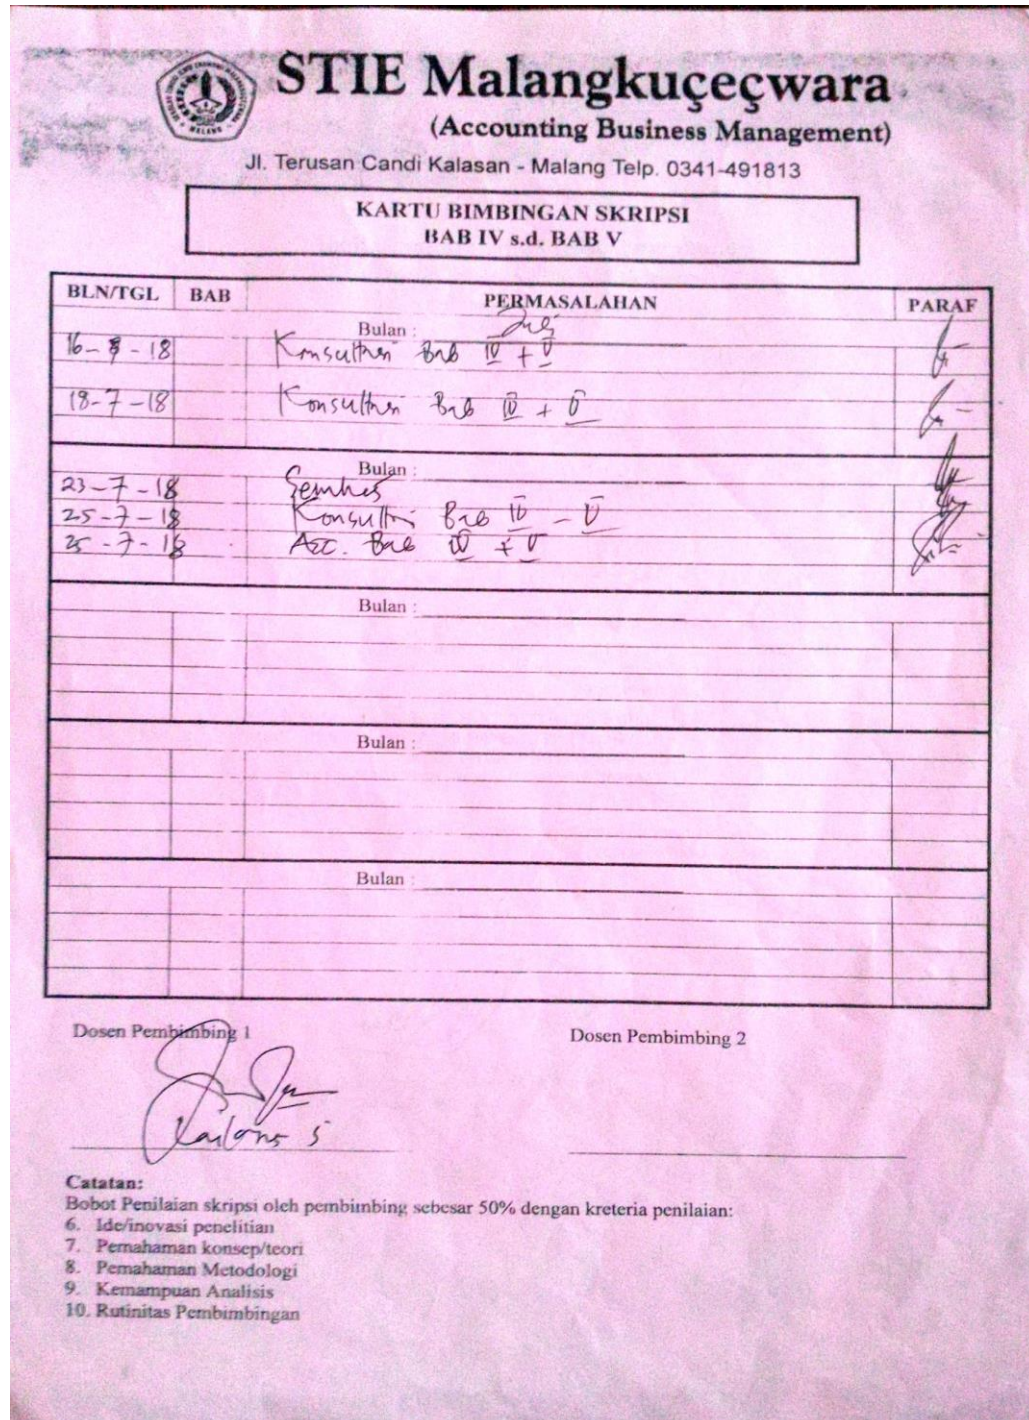 STIE Malangkuçeçwara
(Accounting Business Management)
Jl. Terusan Candi Kalasan - Malang Telp. 0341-491813
KARTU BIMBINGAN SKRIPSI
BAB IV s.d. BAB V
BLN/TGL BAB PERMASALAHAN PARAF
Bulan :
16- - 18 Bab IV + V
18-7-18 Bab IV + V
Bulan :
23-7-18 Semhas
25-7-18 Bab IV - V
25-7-18 Acc. Bab IV + V
Bulan :
Bulan :
Bulan :
Dosen Pembimbing 1 Dosen Pembimbing 2
Catatan:
Bobot Penilaian skripsi oleh pembimbing sebesar 50% dengan kreteria penilaian:
6. Ide/inovasi penelitian
7. Pemahaman konsep/teori
8. Pemahaman Metodologi
9. Kemampuan Analisis
10. Rutinitas Pembimbingan